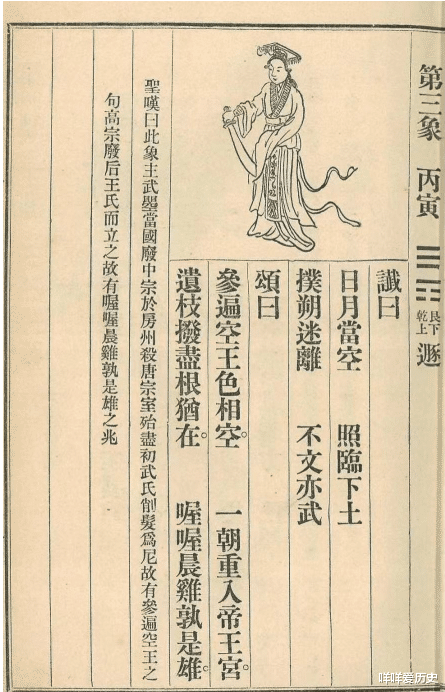 第三象 丙寅 艮下乾上 遯
讖曰
日月當空 照臨下土
撲朔迷離 不文亦武
頌曰
參遍空王色相空。 一朝重入帝王宮。
遺枝撥盡根猶在。 喔喔晨雞孰是雄。
聖嘆曰此象主武曌當國廢中宗於房州殺唐宗室殆盡初武氏削髮為尼故有參遍空王之
句高宗廢后王氏而立之故有喔喔晨雞孰是雄之兆
咩咩爱历史